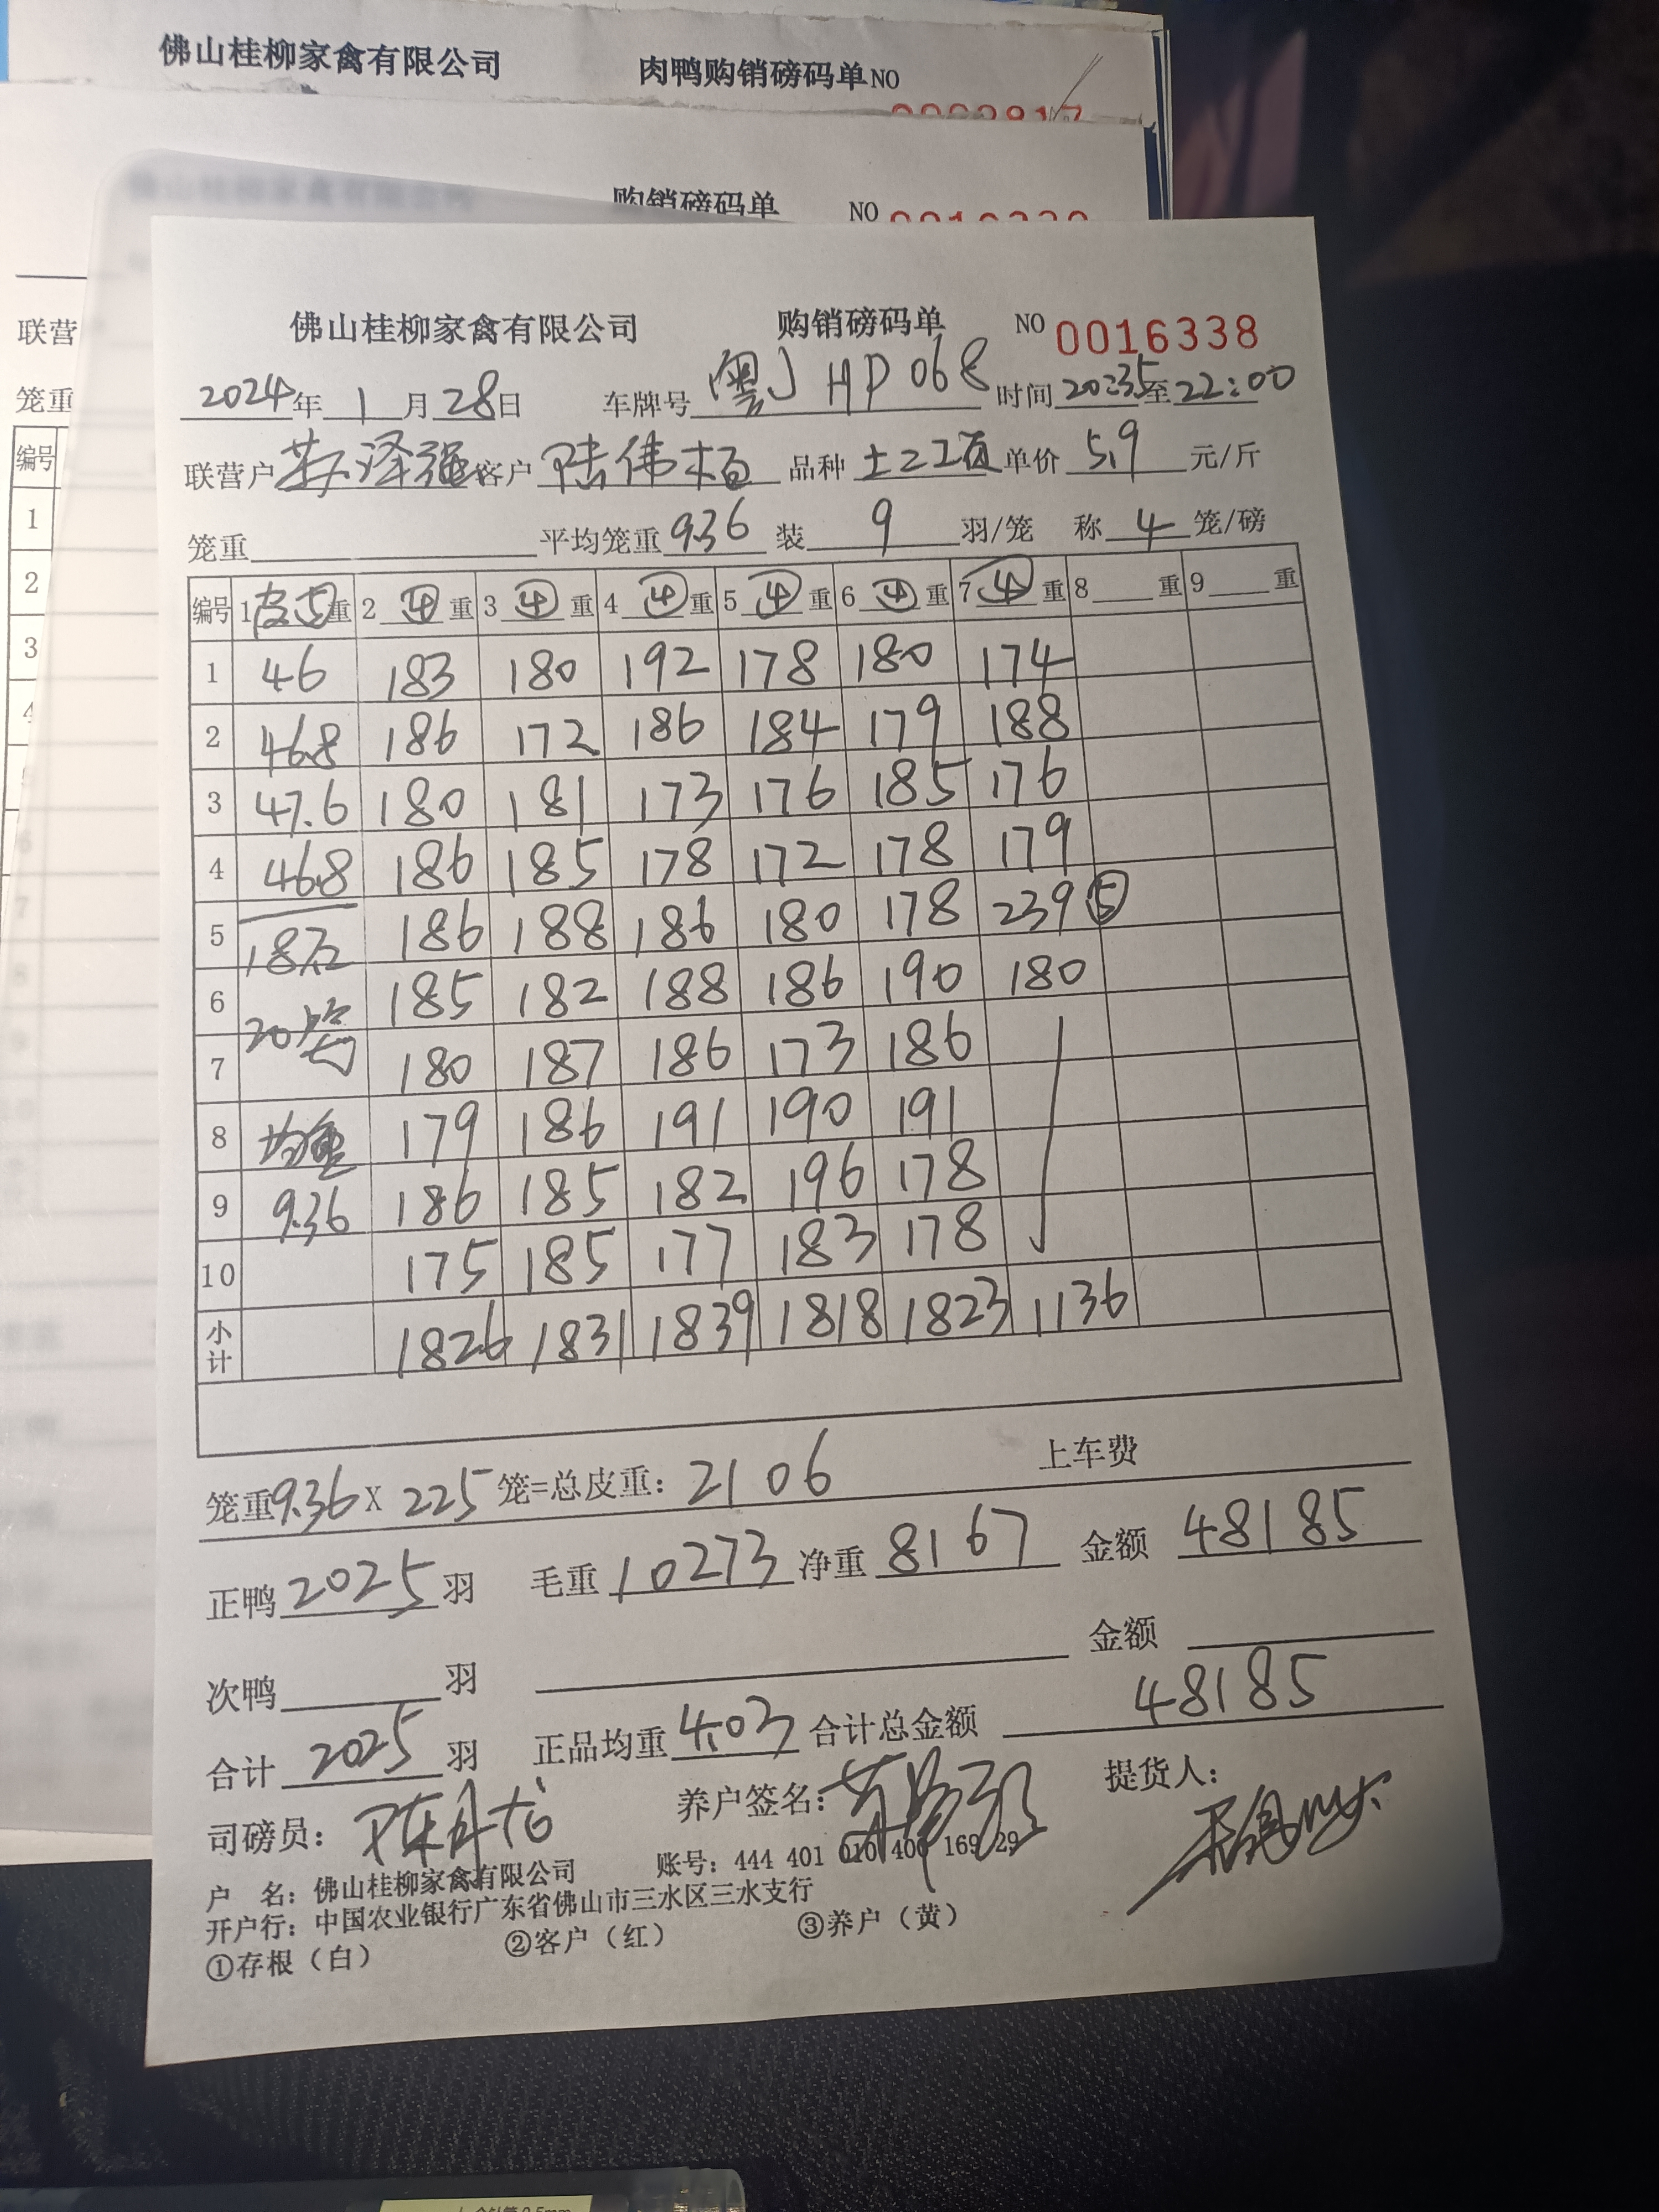 佛山桂柳家禽有限公司 肉鸭购销磅码单NO
购销磅码单 NO
联营
笼重
编号
1
2
3
佛山桂柳家禽有限公司 购销磅码单 NO 0016338
2024年 1月28日 车牌号 粤J HP068 时间20:35至22:00
联营户 苏泽强 客户 陆伟柏 品种 单价 5.9 元/斤
笼重 平均笼重 9.36 装 9 羽/笼 称 4 笼/磅
编号 1皮⑤重 2 ④ 重 3 ④ 重 4 ④ 重 5 ④ 重 6 ④ 重 7 ④ 重 8 重 9 重
1 46 183 180 192 178 180 174
2 46.8 186 172 186 184 179 188
3 47.6 180 181 173 176 185 176
4 46.8 186 185 178 172 178 179
5 187.2 186 188 186 180 178 239⑤
6 20笼 185 182 188 186 190 180
7 180 187 186 173 186
8 均重 179 186 191 190 191
9 9.36 186 185 182 196 178
10 175 185 177 183 178
小计 1826 1831 1839 1818 1823 1136
笼重9.36 X 225 笼=总皮重: 2106 上车费
正鸭 2025 羽 毛重 10273 净重 8167 金额 48185
次鸭 羽 金额
合计 2025 羽 正品均重 4.03 合计总金额 48185
司磅员: 养户签名: 提货人:
户 名: 佛山桂柳家禽有限公司 账号: 444 401 010 400 169 29
开户行: 中国农业银行广东省佛山市三水区三水支行
①存根（白） ②客户（红） ③养户（黄）